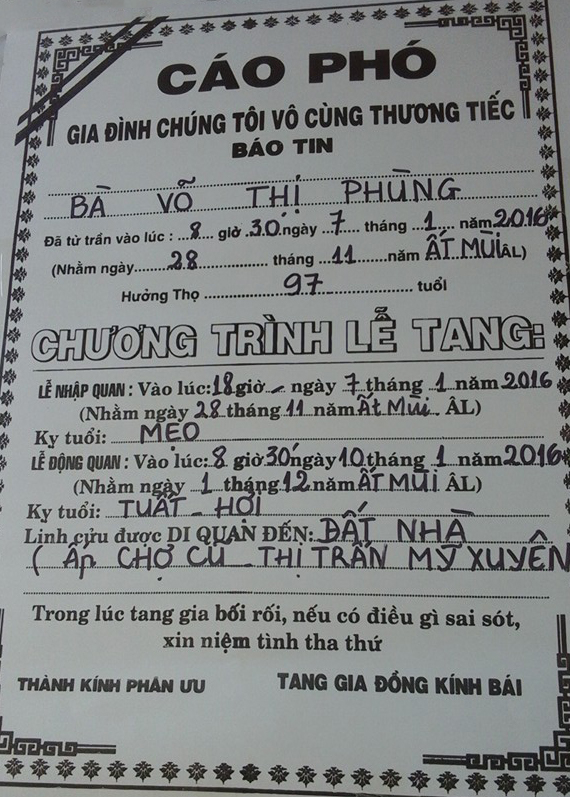 CÁO PHÓ
GIA ĐÌNH CHÚNG TÔI VÔ CÙNG THƯƠNG TIẾC
BÁO TIN
BÀ VÕ THỊ PHÙNG
Đã từ trần vào lúc : 8 giờ 30 ngày 7 tháng 1 năm 2016
(Nhằm ngày 28 tháng 11 năm ẤT MÙI ÂL)
Hưởng Thọ 97 tuổi
CHƯƠNG TRÌNH LỄ TANG:
LỄ NHẬP QUAN : Vào lúc: 18 giờ - ngày 7 tháng 1 năm 2016
(Nhằm ngày 28 tháng 11 năm Ất Mùi ÂL)
Kỵ tuổi: MẸO
LỄ ĐỘNG QUAN : Vào lúc: 8 giờ 30 ngày 10 tháng 1 năm 2016
(Nhằm ngày 1 tháng 12 năm ẤT MÙI ÂL)
Kỵ tuổi: TUẤT - HỢI
Linh cữu được DI QUAN ĐẾN: ĐẤT NHÀ
( Ấp CHỢ CŨ - THỊ TRẤN MỸ XUYÊN
Trong lúc tang gia bối rối, nếu có điều gì sai sót,
xin niệm tình tha thứ
THÀNH KÍNH PHÂN ƯU TANG GIA ĐỒNG KÍNH BÁI